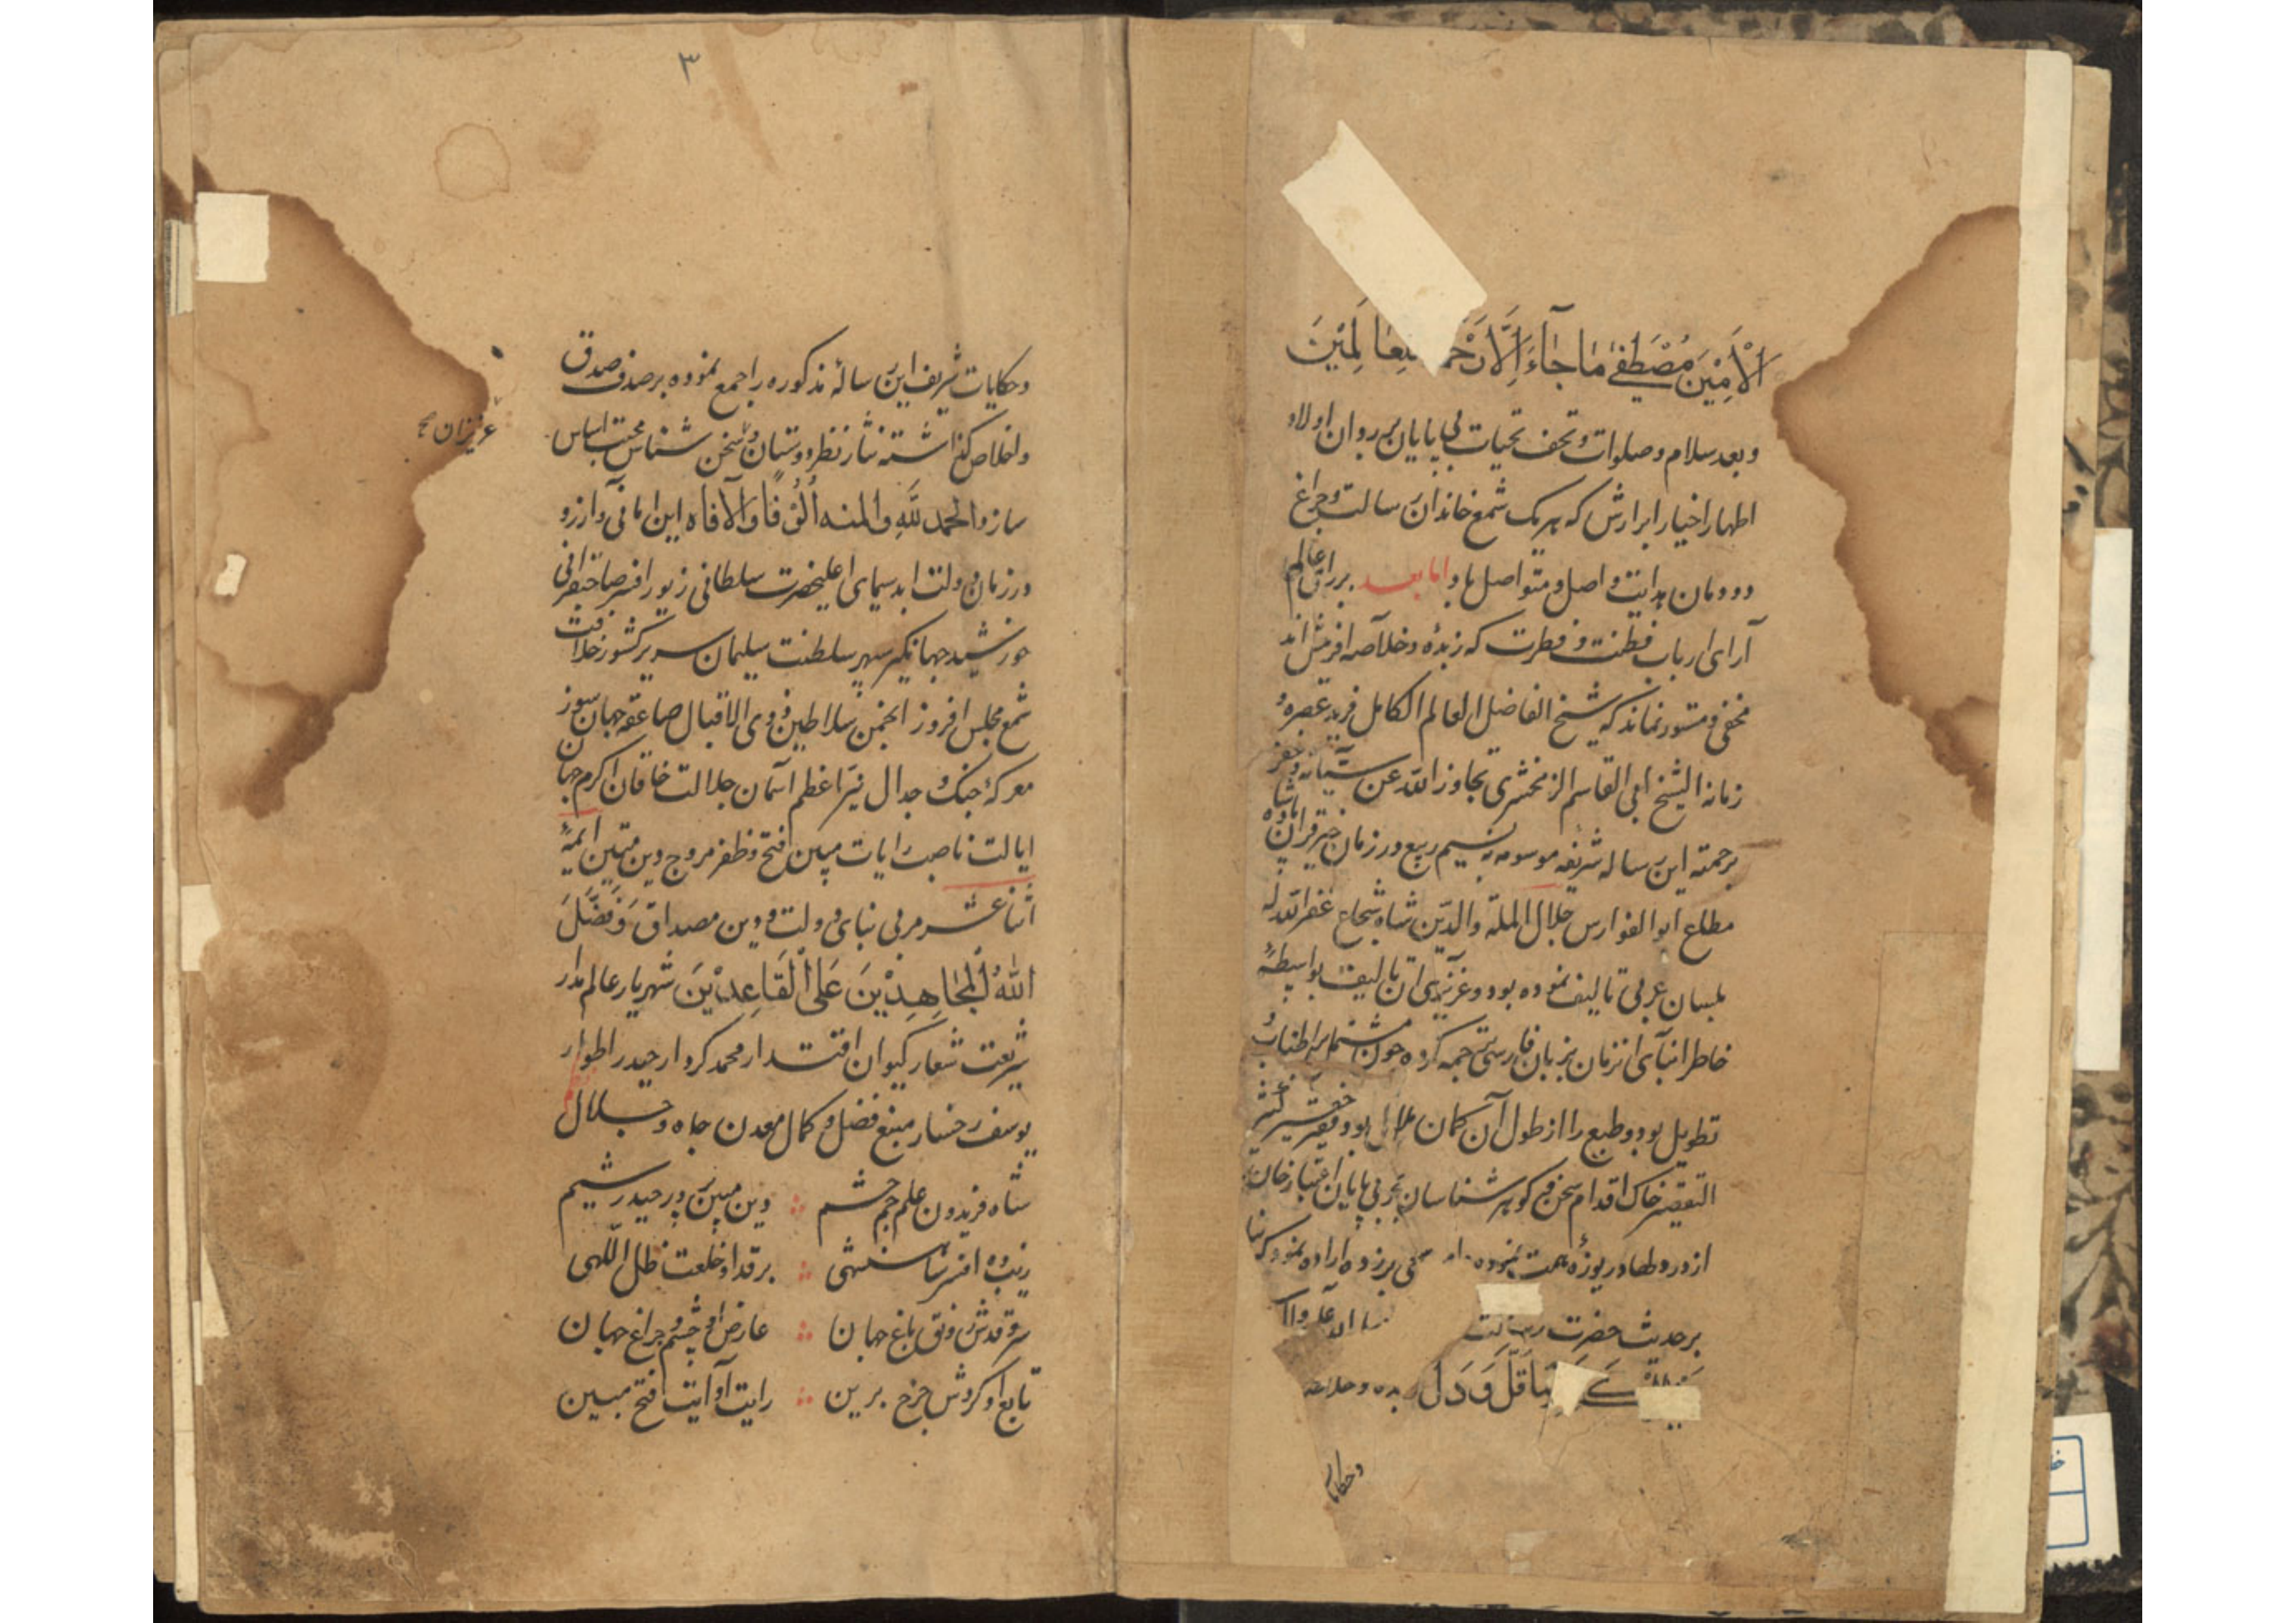 الْأَمِيْنَ مُصْطَفٰى مَا جَآءَ اِلَّا رَحْمَةً لِلْعَالَمِيْنَ
وبعد سلام وصلوات وتحف تحیات بی پایان بر روان اولاد
اطهار اخیار ابرارش که هر یک شمع خاندان رسالت و چراغ
دودمان هدایت واصل و متواصل باد اما بعد بر رای عالم
آرای ارباب فطنت و فطرت که زبده و خلاصه افرینش اند
مخفی و مستور نماند که شیخ الفاضل العالم الکامل فرید عصره و
زمانه الشیخ ابی القاسم الزمخشری تجاوز الله عن سیئاته وغفر
برحمته این رساله شریفه موسومه به نسیم ربیع در زمان پادشاه
مطاع ابو الفوارس جلال الملة والدین شاه شجاع غفر الله له
بلسان عربی تالیف نموده بود و عزیزی ان تالیف بواسطهٔ
خاطر ابنآی انزمان بزبان فارسی ترجمه کرده چون مشتمل بر اطناب و
تطویل بود و طبع را از طول آن کمان ملال بود فقیر حقیر کثیر
التقصیر خاک اقدام سخن و گوهر شناسان بحر بی پایان
از در ولها دریوزهٔ همت نموده بر زده اراده نمود که بنا
بر حدیث حضرت رسالت
مَا قَلَّ وَدَلَّ
وحکایات
۳
وحکایات شریف این رسالهٔ مذکوره را جمع نموده بر صدف صدق
واخلاص گذاشته نثار نظر دوستان و سخن شناس محبت اساس
عزیزان صح
سازد الحمد لله والمنه این امانی و آرزو
در زمان دولت ابد سیمای اعلیحضرت سلطانی زیور افسر صاحبقرانی
خورشید جهانگیر سپهر سلطنت سلیمان سریر کشور خلافت
شمع مجلس افروز انجمن سلاطین ذوی الاقبال صاعقه جهان سوز
معرکهٔ جنگ و جدال نیّر اعظم اسمان جلالت خاقان اکرم جهان
ایالت ناصب رایات مبین فتح و ظفر مروج دین متین ایمهٔ
اثنا عشر مربی بنای دولت و دین مصداق وَفَضَّلَ
اللهُ الْمُجَاهِدِيْنَ عَلَى الْقَاعِدِيْنَ شهریار عالم مدار
شریعت شعار کیوان اقتدار محمد کردار حیدر اطوار
یوسف رخسار منبع فضل و کمال معدن جاه و جلال
شاه فریدون علم جم حشم ؞ دین مبین پرور حیدر شیم
زیبده افسر شاهنشهی ؞ بر قد او خلعت ظل اللهی
سرو قدش رونق باغ جهان ؞ عارض او چشم و چراغ جهان
تابع او کردش چرخ برین ؞ رایت او آیت فتح مبین